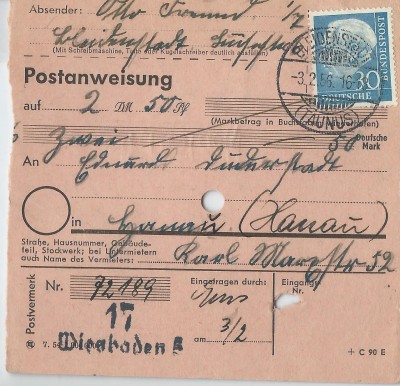 Absender: Otto Freund
Bleidenstadt
(Mit Schreibmaschine, Tinte oder Kugelschreiber deutlich ausfüllen)
BLEIDENSTADT
-3.2.56.16
(TAUNUS)
30
DEUTSCHE
BUNDESPOST
Postanweisung
auf 2 DM 50 Pf
(Markbetrag in Buchstaben wiederholen)
Zwei 50 Deutsche Mark
An Eduard Duderstadt
in Hanau (Hanau)
Straße, Hausnummer, Gebäude-
teil, Stockwerk; bei Untermietern
auch Name des Vermieters: Karl Marxstr 52
Postvermerk
Nr. 72189
Eingetragen durch:
Eingangs-
Nr.
17
Wiesbaden
am 3/2
+ C 90 E